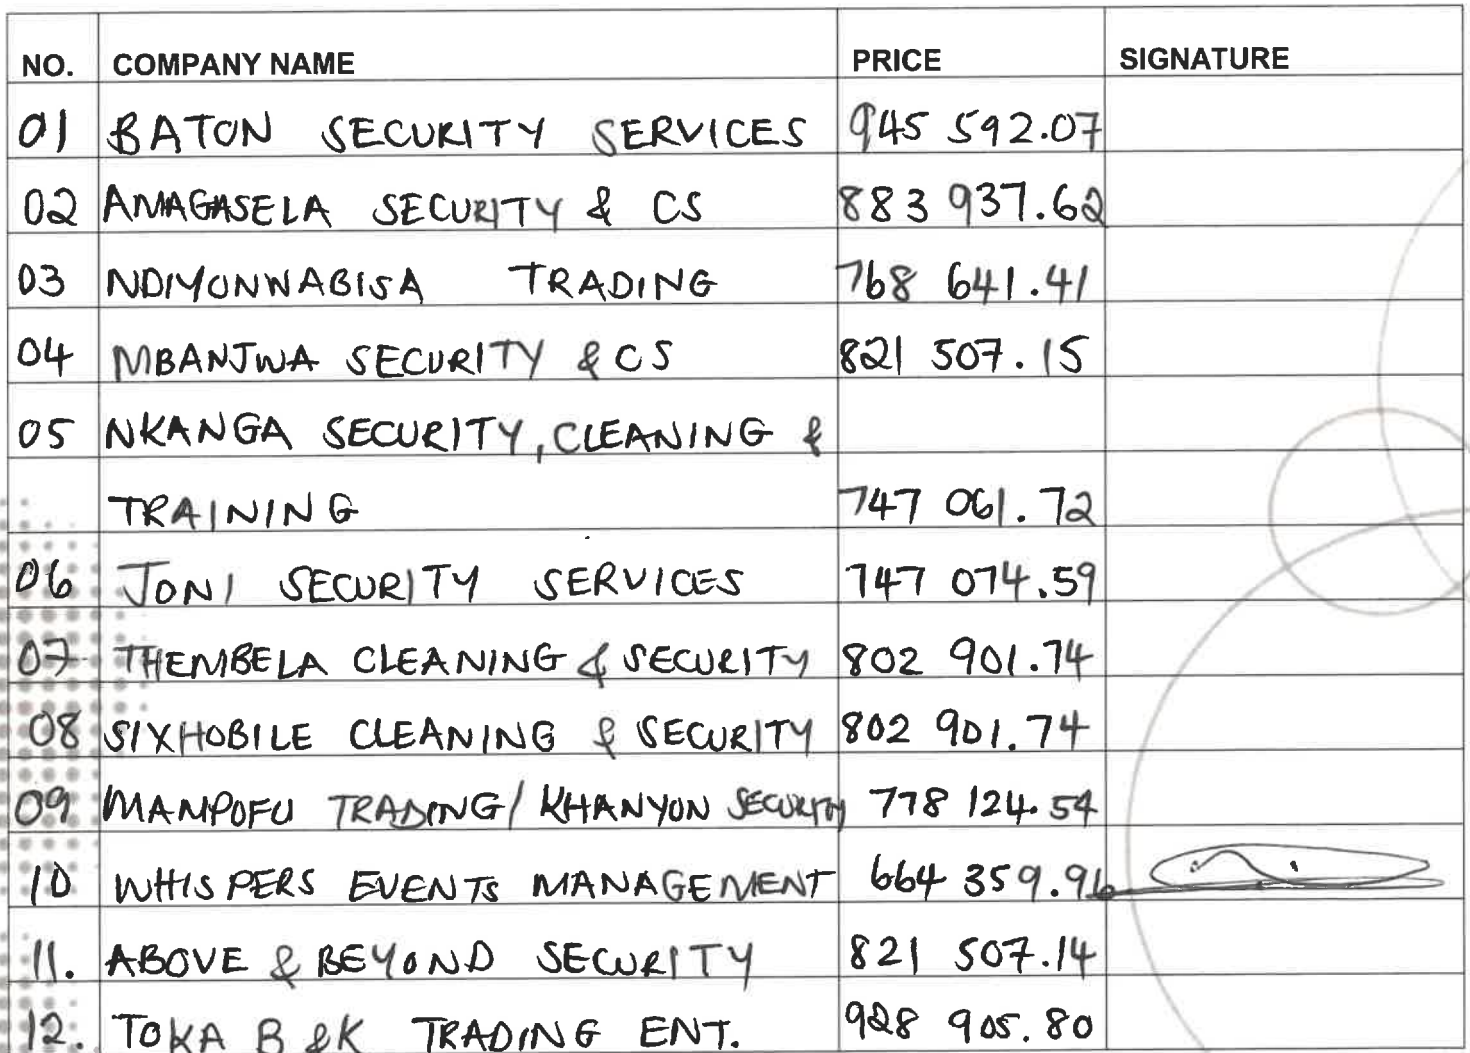 NO. COMPANY NAME PRICE SIGNATURE
01 BATON SECURITY SERVICES 945 592.07
02 AMAGASELA SECURITY & CS 883 937.62
03 NDIYONWABISA TRADING 768 641.41
04 MBANJWA SECURITY & CS 821 507.15
05 NKANGA SECURITY, CLEANING &
TRAINING 747 061.72
06 JONI SECURITY SERVICES 747 074.59
07 THEMBELA CLEANING & SECURITY 802 901.74
08 SIXHOBILE CLEANING & SECURITY 802 901.74
09 MAMPOFU TRADING/ KHANYON SECURITY 778 124.54
10 WHISPERS EVENTS MANAGEMENT 664 359.96
11. ABOVE & BEYOND SECURITY 821 507.14
12. TOKA B & K TRADING ENT. 928 905.80